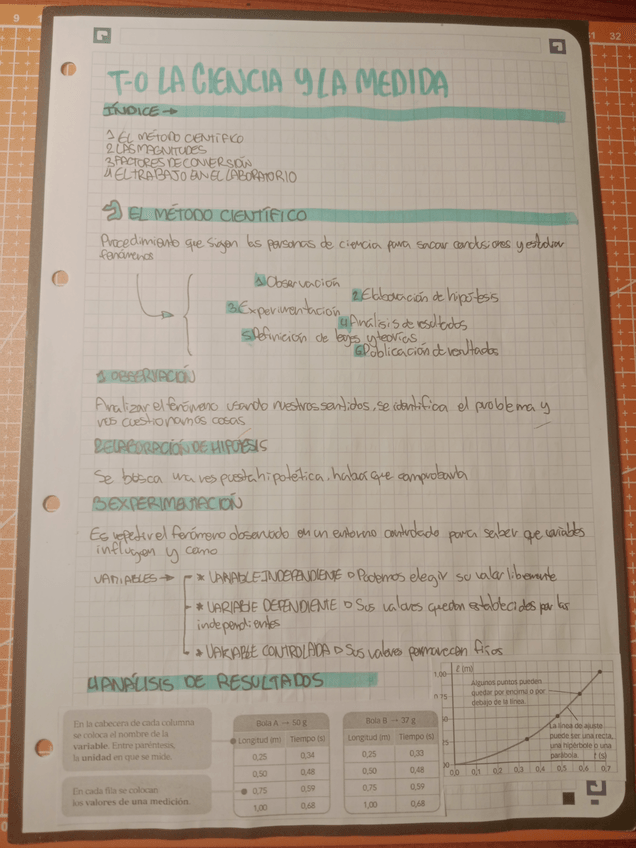 T-0 LA CIENCIA Y LA MEDIDA
ÍNDICE →
1 EL MÉTODO CIENTÍFICO
2 LAS MAGNITUDES
3 FACTORES DE CONVERSIÓN
4 EL TRABAJO EN EL LABORATORIO
1) EL MÉTODO CIENTÍFICO
Procedimiento que siguen las personas de ciencia para sacar conclusiones y estudiar
fenómenos
1 Observación
2 Elaboración de hipótesis
3 Experimentación
4 Análisis de resultados
5 Definición de leyes y teorías
6 Publicación de resultados
1 OBSERVACIÓN
Analizar el fenómeno usando nuestros sentidos, se identifica el problema y
nos cuestionamos cosas
2 ELABORACIÓN DE HIPÓTESIS
Se busca una respuesta hipotética, habrá que comprobarla
3 EXPERIMENTACIÓN
Es repetir el fenómeno observado en un entorno controlado para saber que variables
influyen y como
VARIABLES → * VARIABLE INDEPENDIENTE Podemos elegir su valor libremente
* VARIABLE DEFENDIENTE Sus valores quedan establecidos por las
independientes
* VARIABLE CONTROLADA Sus valores permanecen fijos
4 ANÁLISIS DE RESULTADOS
En la cabecera de cada columna
se coloca el nombre de la
variable. Entre paréntesis,
la unidad en que se mide.
En cada fila se colocan
los valores de una medición.
Bola A → 50 g
Longitud (m) Tiempo (s)
0,25 0,34
0,50 0,48
0,75 0,59
1,00 0,68
Bola B → 37 g
Longitud (m) Tiempo (s)
0,25 0,33
0,50 0,48
0,75 0,59
1,00 0,68
ℓ (m)
1,00
0,75
Algunos puntos pueden
quedar por encima o por
debajo de la línea.
La línea de ajuste
puede ser una recta,
una hipérbole o una
parábola.
t (s)
0,0 0,1 0,2 0,3 0,4 0,5 0,6 0,7